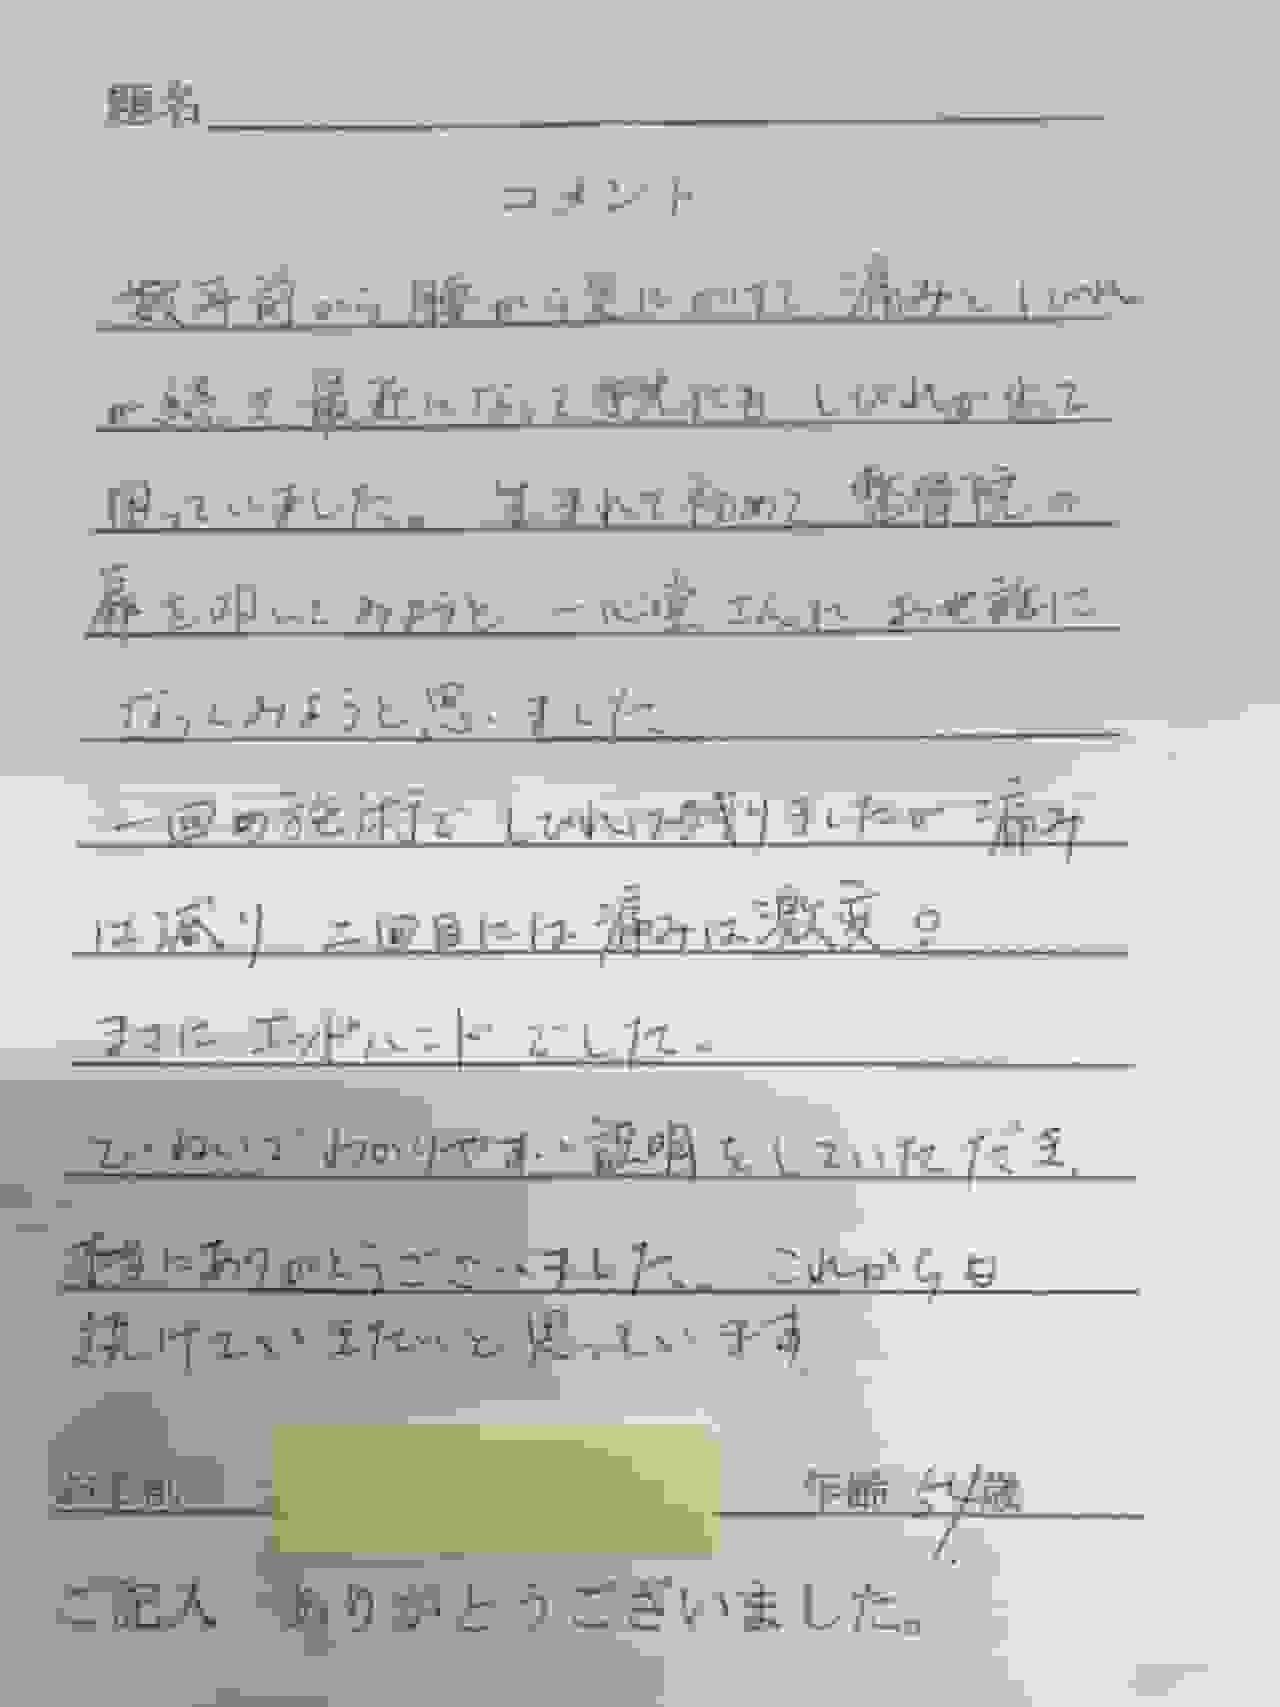 題名
コメント
数年前から腰から足にかけて痛みとしびれ
が続き最近になって しびれが出て
困っていました。生まれて初めて整骨院の
扉を叩いてみようと一心堂さんにお世話に
なってみようと思いました
一回の施術でしびれは残りましたが痛み
は減り 二回目には痛みは激変!
まさにゴッドハンドでした。
ていねいでわかりやすい説明をしていただき、
本当にありがとうございました。これからも
続けていきたいと思っています
お名前 年齢 歳
ご記入 ありがとうございました。